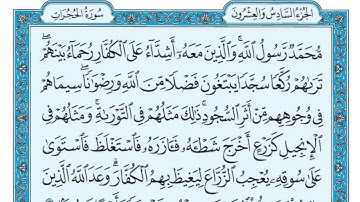 الجزء السادس والعشرون
سورة الحجرات
مُّحَمَّدٌ رَّسُولُ ٱللَّهِ ۚ وَٱلَّذِينَ مَعَهُۥٓ أَشِدَّآءُ عَلَى ٱلْكُفَّارِ رُحَمَآءُ بَيْنَهُمْ ۖ
تَرَىٰهُمْ رُكَّعًا سُجَّدًا يَبْتَغُونَ فَضْلًا مِّنَ ٱللَّهِ وَرِضْوَٰنًا ۖ سِيمَاهُمْ
فِى وُجُوهِهِم مِّنْ أَثَرِ ٱلسُّجُودِ ۚ ذَٰلِكَ مَثَلُهُمْ فِى ٱلتَّوْرَىٰةِ ۚ وَمَثَلُهُمْ فِى
ٱلْإِنجِيلِ كَزَرْعٍ أَخْرَجَ شَطْـَٔهُۥ فَـَٔازَرَهُۥ فَٱسْتَغْلَظَ فَٱسْتَوَىٰ
عَلَىٰ سُوقِهِۦ يُعْجِبُ ٱلزُّرَّاعَ لِيَغِيظَ بِهِمُ ٱلْكُفَّارَ ۗ وَعَدَ ٱللَّهُ ٱلَّذِينَ